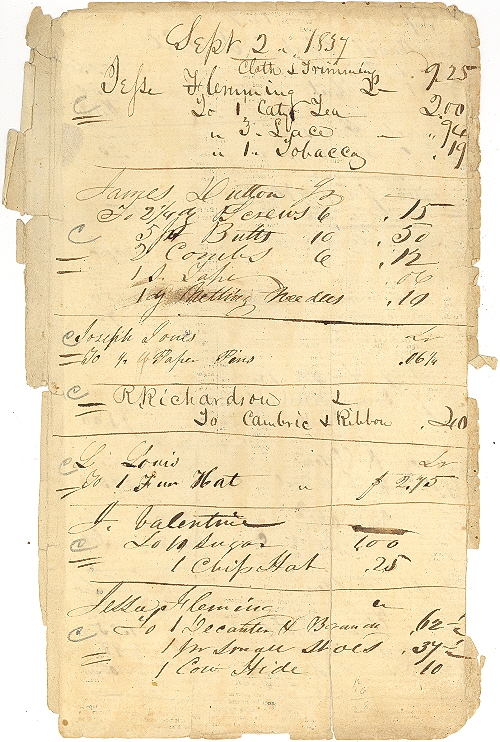 Sept 2 1837
Cloth & Trimming 9.25
Jesse Flemming Dr
To 1 Catty Tea 2.00
" 3 Lace " .94
" 1 " Tobacco .19
James Dutton
To 2 1/4 Screws 6 .15
5 Butts 10 .50
2 Combs 6 .12
1 Tape .06
1 Needles .10
Joseph Jones Dr
To Paper Pins .06 1/4
R Richardson
To Cambric & Ribbon .20
L Louis Dr
To 1 Fur Hat " 2.75
J. Valentine
To Sugar 1.00
1 Chip Hat .25
Jesse Fleming
To 1 Decanter & .62 1/2
1 pr Shoes .37 1/2
1 Cow Hide 10